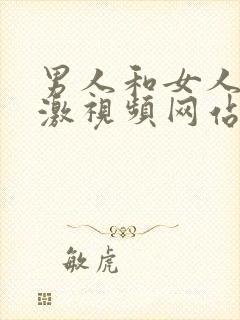 男人和女人
激视频网佔
敏虎